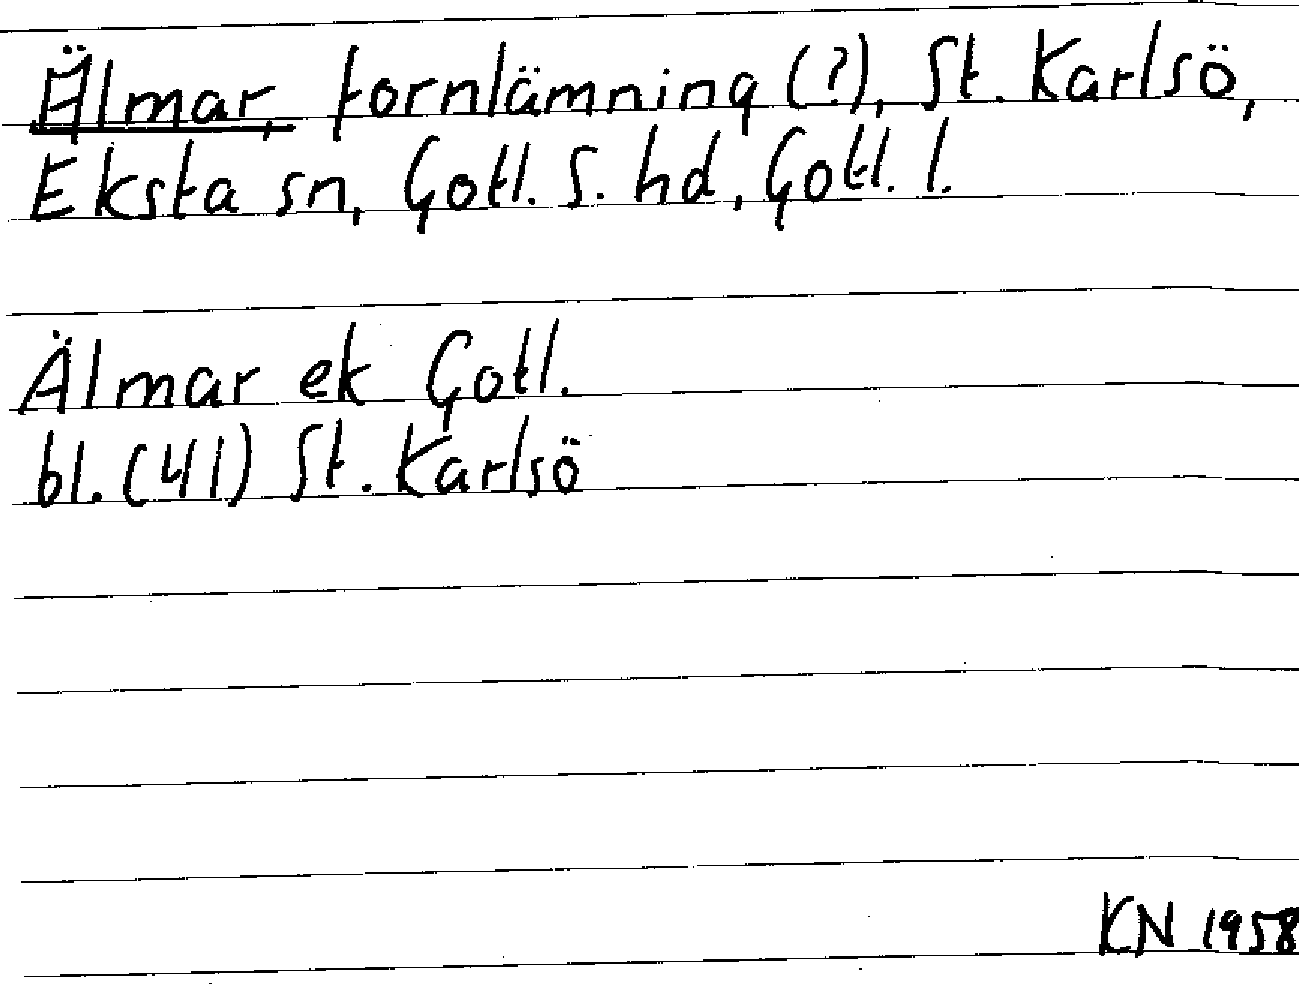 Älmar, fornlämning (?), St. Karlsö,
Eksta sn, Gotl. S. hd, Gotl. l.
Älmar ek Gotl.
bl. (41) St. Karlsö
KN 1958